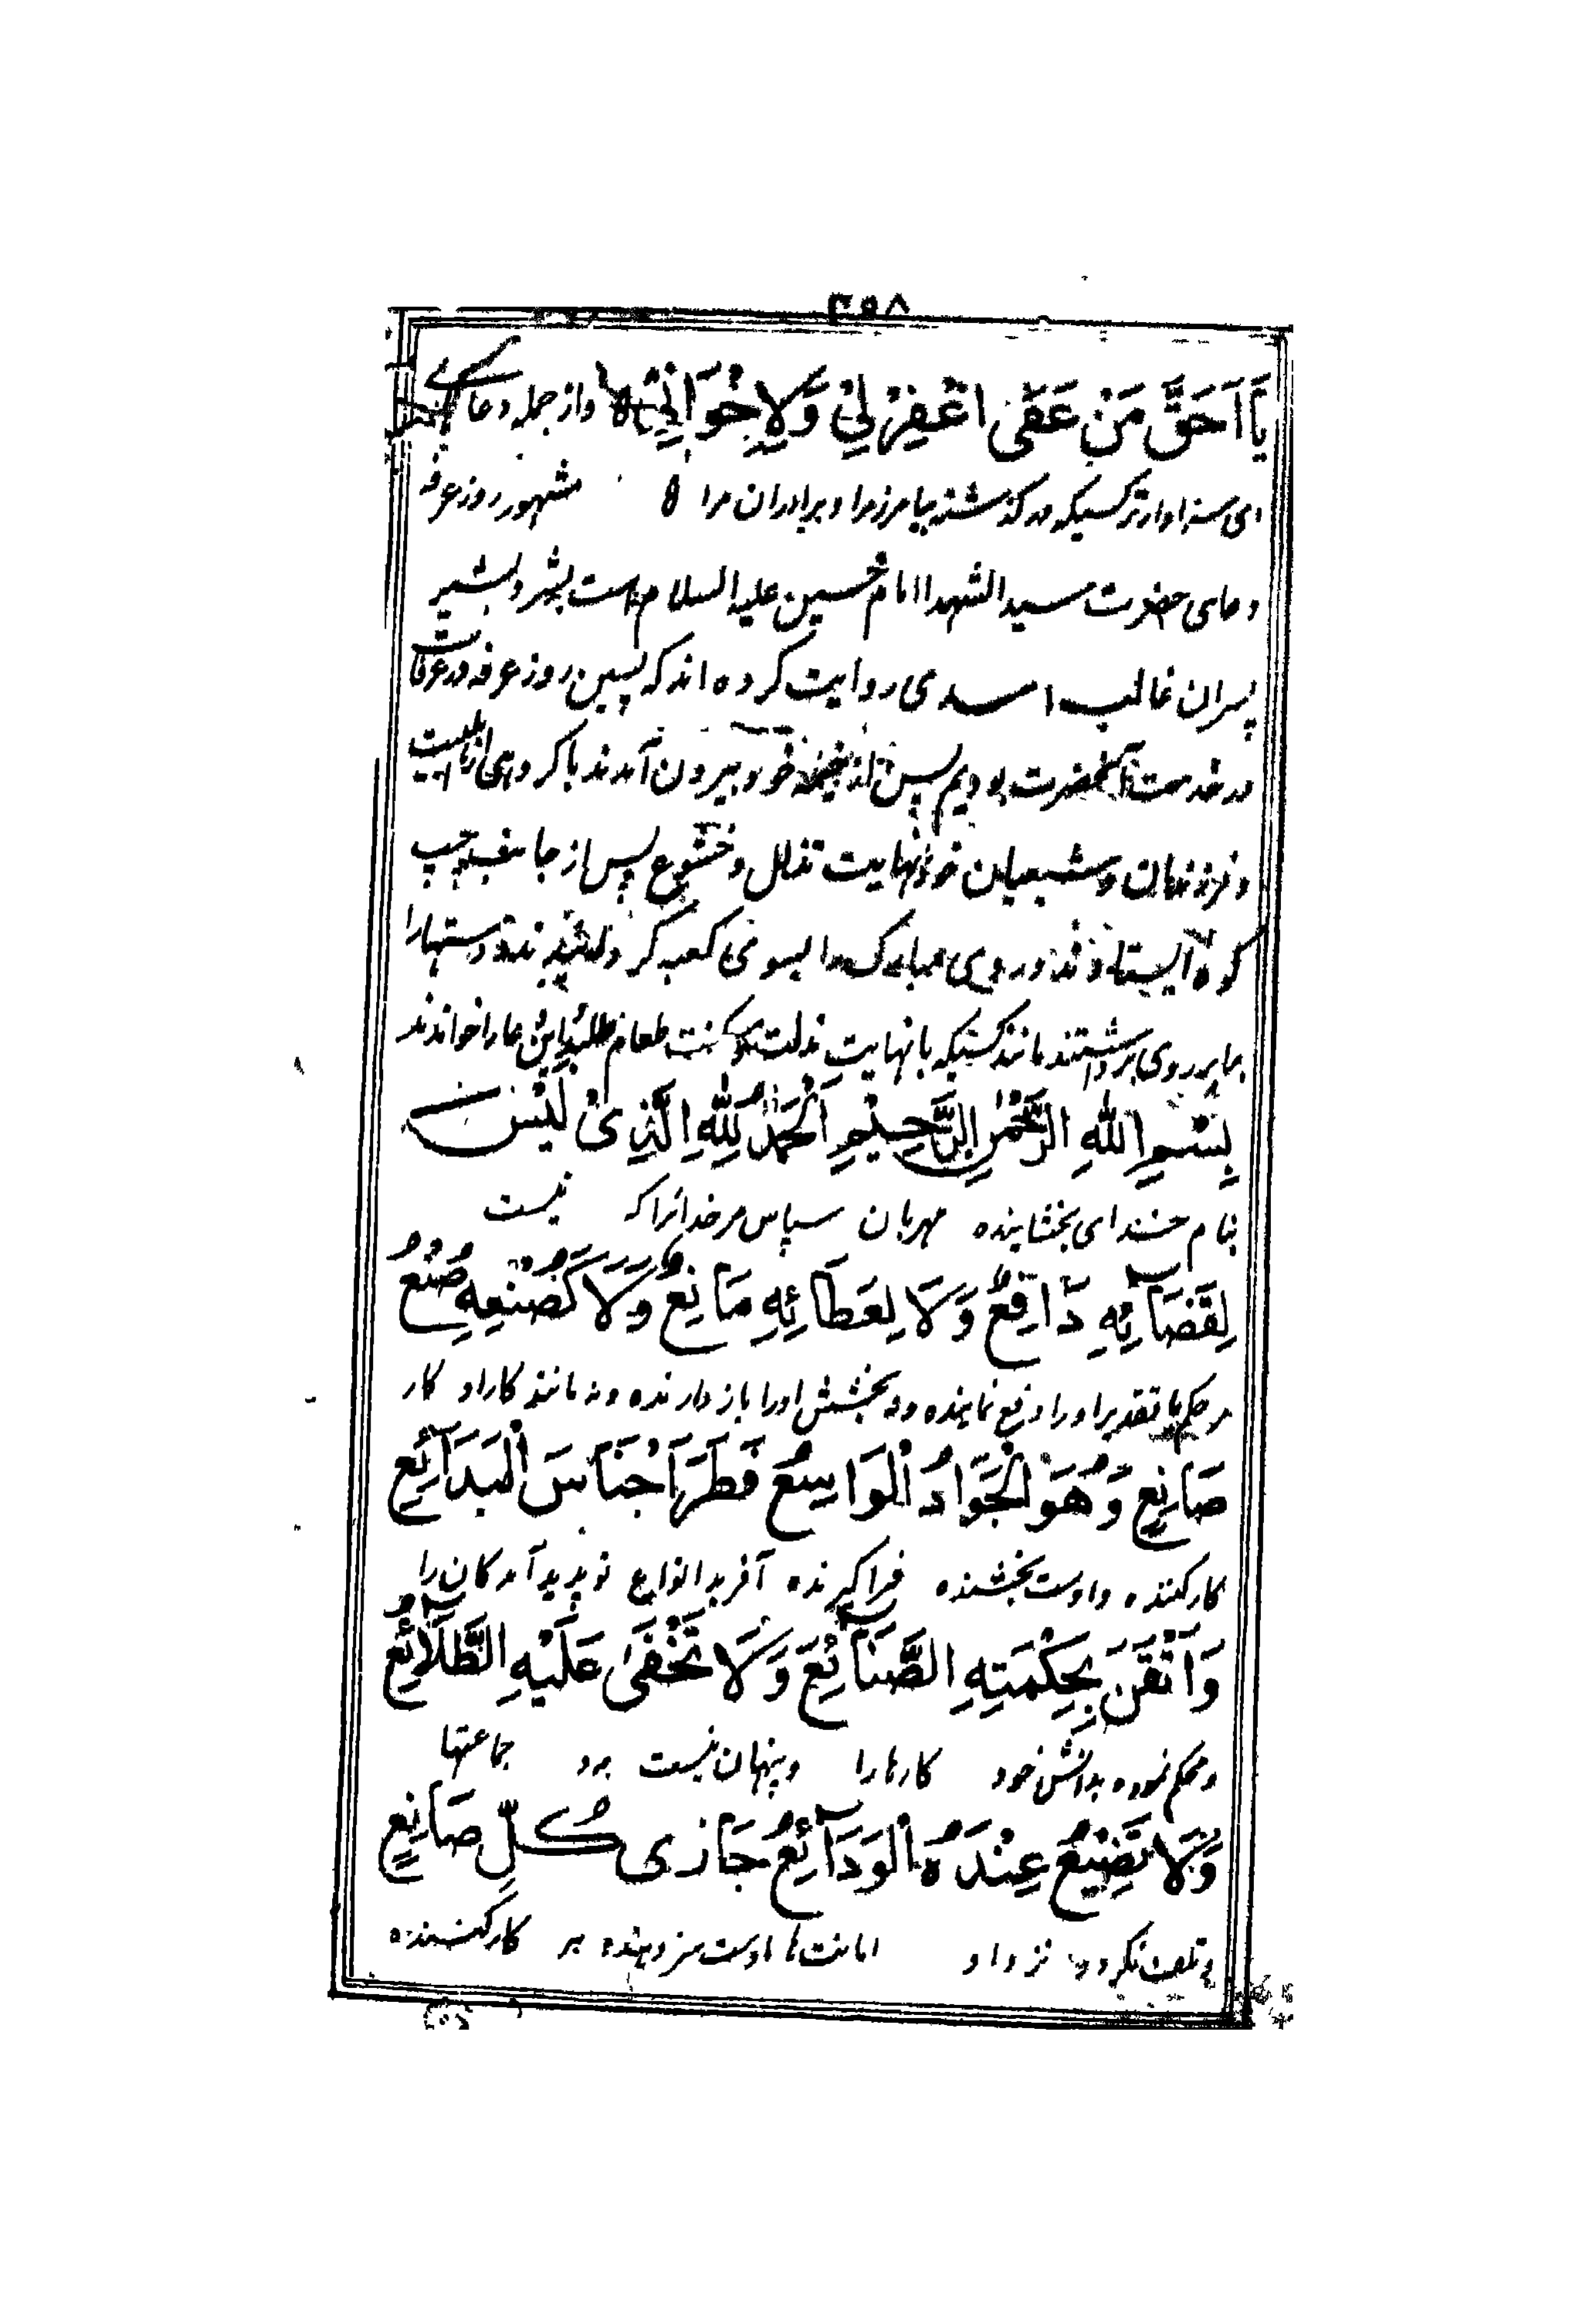 ۳۵۸
يَا اَحَقَّ مَنْ عَفٰى اغْفِرْ لِيْ وَلِاِخْوَانِيْ ۵ واز جمله دعاهای
ای سزاوارتر کسیکه درگذشته بیامرز مرا و برادران مرا ۵ مشهور روز عرفه
دعای حضرت سید الشهدا امام حسین علیه السلام است بشر و بشیر
پسران غالب اسدی روایت کرده اند که پسین روز عرفه در عرفات
در خدمت آنحضرت بودیم پس از خیمهٔ خود بیرون آمدند با گروهی از اهلبیت
و فرزندان و شیعیان خود بنهایت تذلل و خشوع پس از جانب چپ
کوه ایستادند و روی مبارک را بسوی کعبه گردانیدند و دستها را
برابر روی برداشتند مانند کسیکه با نهایت مذلت و مسکنت طعام طلبد این دعا را خواندند
بِسْمِ اللهِ الرَّحْمٰنِ الرَّحِيْمِ اَلْحَمْدُ لِلّٰهِ الَّذِىْ لَيْسَ
بنام خدای بخشاینده مهربان سپاس مر خدائرا که نیست
لِقَضَآئِهِ دَافِعٌ وَلَا لِعَطَائِهِ مَانِعٌ وَلَا كَصُنْعِهِ صُنْعُ
مر حکم یا تقدیر او را دفع نماینده و نه بخشش او را باز دارنده و نه مانند کار او کار
صَانِعٍ وَهُوَ الْجَوَادُ الْوَاسِعُ فَطَرَ اَجْنَاسَ الْبَدَآئِعِ
کارکننده و اوست بخشنده فراگیرنده آفرید انواع نو پدید آمدگان را
وَاَتْقَنَ بِحِكْمَتِهِ الصَّنَآئِعَ وَلَا تَخْفٰى عَلَيْهِ الطَّلَآئِعُ
و محکم نموده بدانش خود کارها را و پنهان نیست بر او جماعتها
وَلَا تَضِيْعُ عِنْدَهُ الْوَدَآئِعُ جَازِى كُلِّ صَانِعٍ
و تلف نگردد نزد او امانت ها اوست مزد دهنده هر کارکننده